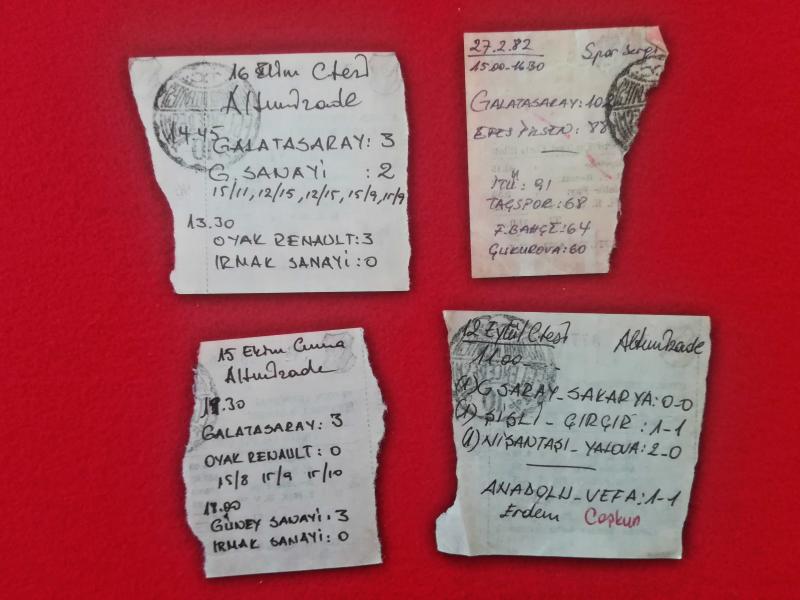 16 Ekim Ctesi
Altunizade
14.45
GALATASARAY: 3
G. SANAYİ : 2
15/11, 12/15, 12/15, 15/9, 15/9
13.30
OYAK RENAULT: 3
IRMAK SANAYİ: 0
27.2.82
Spor Sergi
15.00-16.30
GALATASARAY: 102
EFES PİLSEN: 88
MÜ: 91
TAÇSPOR: 68
F. BAHÇE: 64
ÇUKUROVA: 60
15 Ekim Cuma
Altunizade
GALATASARAY: 3
OYAK RENAULT: 0
15/8 15/9 15/10
GÜNEY SANAYİ: 3
IRMAK SANAYİ: 0
12 Eylül Ctesi
Altunizade
11.00
(1) G. SARAY - SAKARYA: 0-0
(1) ŞİŞLİ - ÇIRÇIR : 1-1
(1) NİŞANTAŞI - YALOVA: 2-0
ANADOLU - VEFA: 1-1
Erdem Coşkun